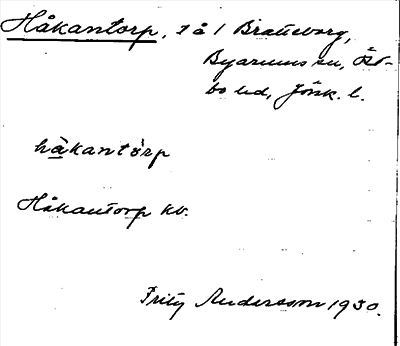 Håkantorp, t å 1 Bratteborg,
Byarums sn, Öst-
bo hd, Jönk. l.
håkantòrp
Håkantorp kv.
Fritz Andersson 1930.